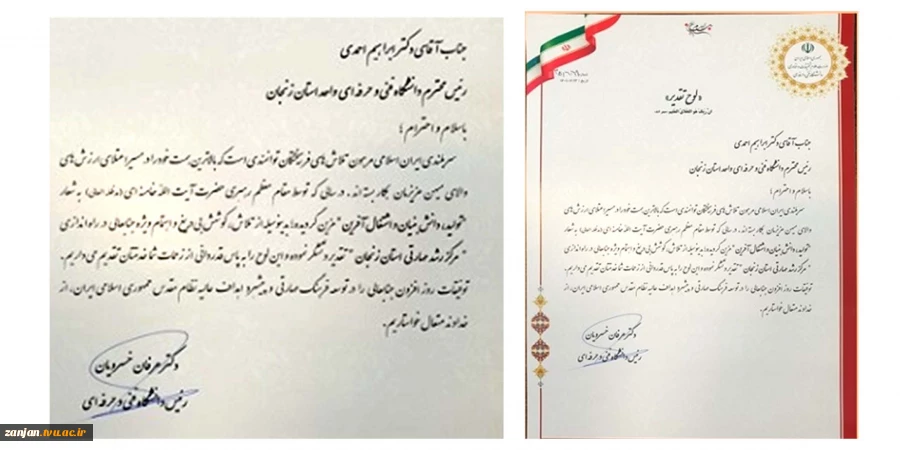 جناب آقای دکتر ابراهیم احمدی
رئیس محترم دانشگاه فنی و حرفه ای واحد استان زنجان
باسلام و احترام ؛
سربلندی ایران اسلامی مرهون تلاش های فرهیختگان توانمندی است که بالاترین همت خود را در مسیر اعتلای ارزش های
والای میهن عزیزمان بکار بسته اند. در سالی که توسط مقام معظم رهبری حضرت آیت الله خامنه ای (مدظله العالی) به شعار
"تولید، دانش بنیان و اشتغال آفرین" مزین گردیده؛ بدینوسیله از تلاش، کوشش بی دریغ و اهتمام ویژه جنابعالی در راه اندازی
"مرکز رشد مهارتی استان زنجان" تقدیر و تشکر نموده و این لوح را به پاس قدردانی از زحمات شما خدمتتان تقدیم می داریم.
توفیقات روز افزون جنابعالی را در توسعه فرهنگ مهارتی و پیشبرد اهداف عالیه نظام مقدس جمهوری اسلامی ایران، از
خداوند متعال خواستاریم.
دکتر عرفان خسرویان
رئیس دانشگاه فنی و حرفه ای
zanjan.tvu.ac.ir
«لوح تقدیر»
جناب آقای دکتر ابراهیم احمدی
رئیس محترم دانشگاه فنی و حرفه ای واحد استان زنجان
باسلام و احترام ؛
سربلندی ایران اسلامی مرهون تلاش های فرهیختگان توانمندی است که بالاترین همت خود را در مسیر اعتلای ارزش های
والای میهن عزیزمان بکار بسته اند. در سالی که توسط مقام معظم رهبری حضرت آیت الله خامنه ای (مدظله العالی) به شعار
"تولید، دانش بنیان و اشتغال آفرین" مزین گردیده؛ بدینوسیله از تلاش، کوشش بی دریغ و اهتمام ویژه جنابعالی در راه اندازی
"مرکز رشد مهارتی استان زنجان" تقدیر و تشکر نموده و این لوح را به پاس قدردانی از زحمات شما خدمتتان تقدیم می داریم.
توفیقات روز افزون جنابعالی را در توسعه فرهنگ مهارتی و پیشبرد اهداف عالیه نظام مقدس جمهوری اسلامی ایران، از
خداوند متعال خواستاریم.
دکتر عرفان خسرویان
رئیس دانشگاه فنی و حرفه ای